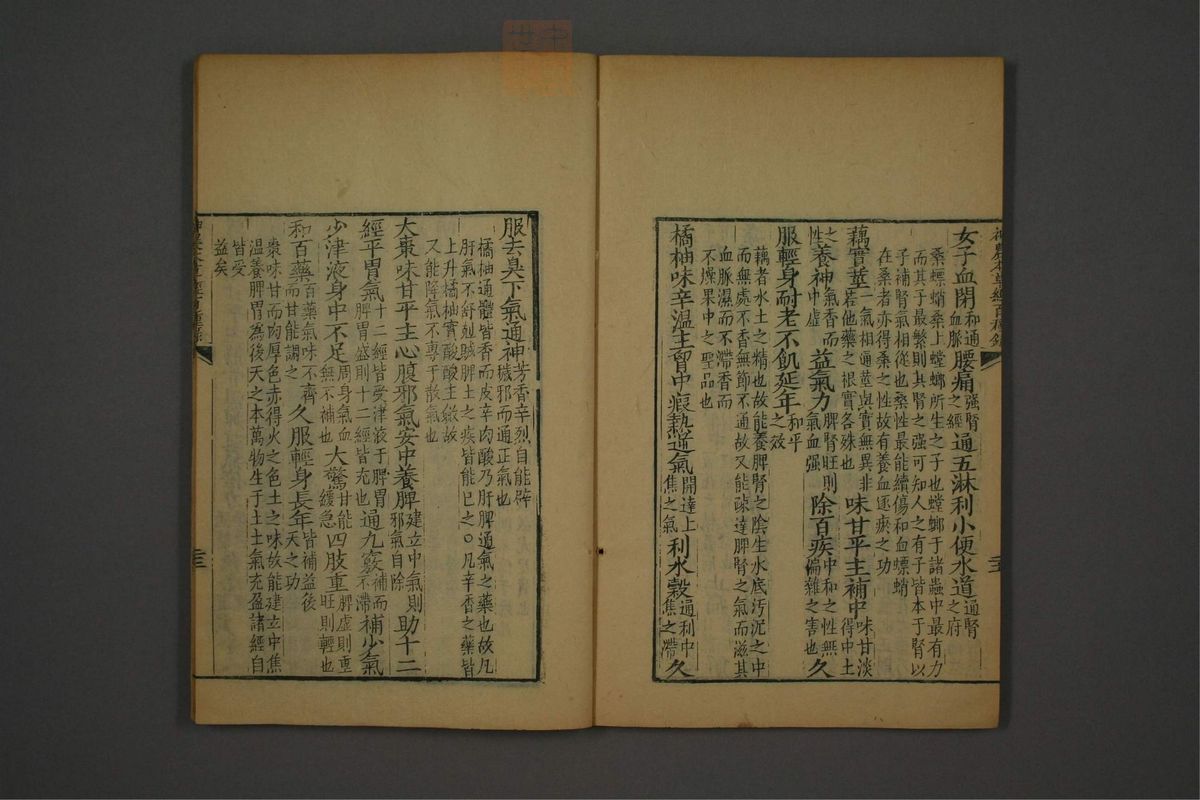 女子血閉和通血脈腰痛强腎之經通五淋利小便水道通腎之府
桑螵蛸桑上螳螂所生之子也螳螂于諸蟲中最有力
而其子最繁則其腎之强可知人之有子皆本于腎以
子補腎氣相從也桑性最能續傷和血螵蛸
在桑者亦得桑之性故有養血逐瘀之功
藕實莖一氣相通莖與實無異非若他藥之根實各殊也味甘平主補中味甘淡得中土
之性養神氣香而中虛益氣力脾腎旺則氣血强除百疾中和之性無偏雜之害也久
服輕身耐老不飢延年和平之效
藕者水土之精也故能養脾腎之陰生水底汚泥之中
而無處不香無節不通故又能疎達脾腎之氣而滋其
血脈濕而不滯香而
不燥果中之聖品也
橘柚味辛溫主胷中瘕熱逆氣開達上焦之氣利水穀通利中焦之滯久
神農本草經百種錄
三
服去臭下氣通神芳香辛烈自能辟穢邪而通正氣也
橘柚通體皆香而皮辛肉酸乃肝脾通氣之藥也故凡
肝氣不舒剋賊脾土之疾皆能已之○凡辛香之藥皆
上升橘柚實酸酸主斂故
又能降氣不專于散氣也
大棗味甘平主心腹邪氣安中養脾建立中氣則邪氣自除助十二
經平胃氣十二經皆受津液于脾胃脾胃盛則十二經皆充也通九竅補而不滯補少氣
少津液身中不足周身氣血無不補也大驚甘能緩急四肢重脾虛則重脾旺則輕也
和百藥百藥氣味不齊而甘能調之久服輕身長年皆補益後天之功
棗味甘而肉厚色赤得火之色土之味故能建立中焦
溫養脾胃為後天之本萬物生于土土氣充盈諸經自
皆受
益矣